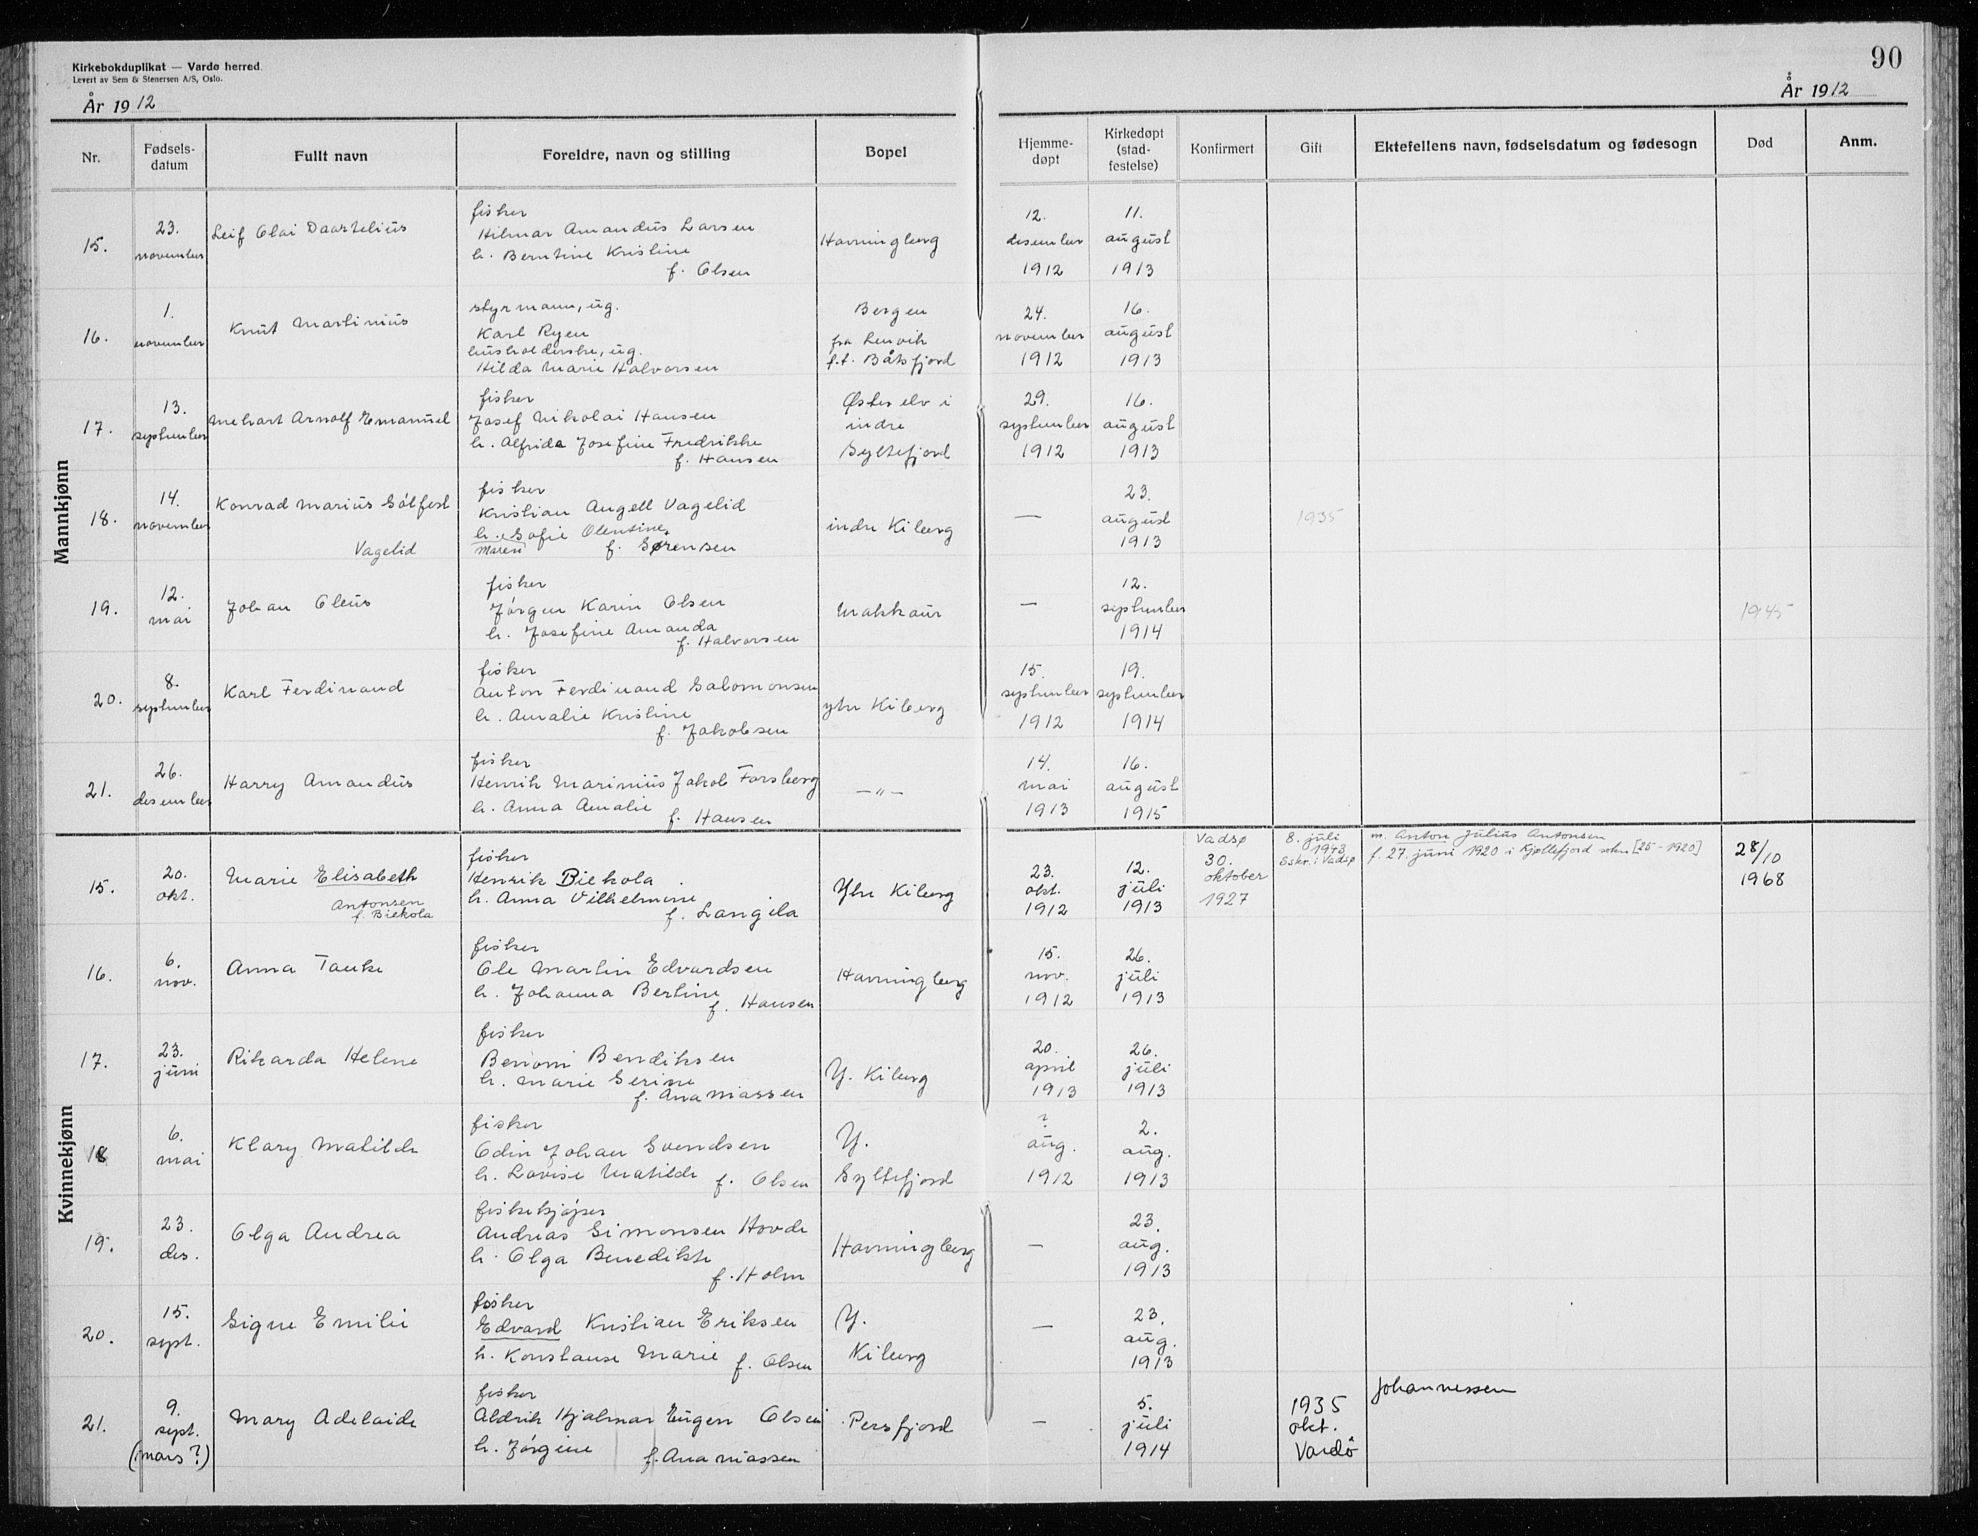 90
Kirkebokduplikat — Vardø herred.
Levert av Sem & Stenersen A/S, Oslo.
År 1912
År 1912
Nr. Fødsels-datum Fullt navn Foreldre, navn og stilling Bopel Hjemme-døpt Kirkedøpt (stad-festelse) Konfirmert Gift Ektefellens navn, fødselsdatum og fødesogn Død Anm.
Mannkjønn
15. 23. november Leif Olai Daartelius
fisker
Hilmar Amandus Larsen
h. Berntine Kristine
f. Olsen
Havningberg
12. desember 1912
11. august 1913
16. 1. november Knut Martinius
styrmann, ug.
Karl Ryen
husholderske, ug.
Hilda Marie Halvorsen
Bergen
fra Lenvik
f.t. Båtsfjord
24. november 1912
16. august 1913
17. 13. september Mehart Arnolf Emanuel
fisker
Josef Nikolai Hansen
h. Alfrida Josefine Fredrikke
f. Hansen
Østerelv i
indre
Syltefjord
29. september 1912
16. august 1913
18. 14. november Konrad Marius Sólfest
Vagelid
fisker
Kristian Angell Vagelid
h. Sofie Olentine
Maren f. Sørensen
indre Kiberg
—
23. august 1913
1935
19. 12. mai Johan Oleus
fisker
Jørgen Karin Olsen
h. Josefine Amanda
f. Halvorsen
Makkaur
—
12. september 1914
1945
20. 8. september Karl Ferdinand
fisker
Anton Ferdinand Salomonsen
h. Amalie Kristine
f. Jakobsen
ytre Kiberg
15. september 1912
19. september 1914
21. 26. desember Harry Amandus
fisker
Henrik Marinius Jakob Forsberg
h. Anna Amalie
f. Hansen
—"—
14. mai 1913
16. august 1915
Kvinnekjønn
15. 20. okt. Marie Elisabeth
Antonsen
f. Biekola
fisker
Henrik Biekola
h. Anna Vilhelmine
f. Langila
Ytre Kiberg
23. okt. 1912
12. juli 1913
Vadsø 30. oktober 1927
8. juli 1943
Sskr. i Vadsø
m. Anton Julius Antonsen
f. 27. juni 1920 i Kjøllefjord sokn [25-1920]
28/10 1968
16. 6. nov. Anna Tanke
fisker
Ole Martin Edvardsen
h. Johanna Bertine
f. Hansen
Havningberg
15. nov. 1912
26. juli 1913
17. 23. juni Rikarda Helene
fisker
Benoni Bendiksen
h. Marie Serine
f. Ananiassen
Y. Kiberg
20. april 1913
26. juli 1913
18 6. mai Klary Matilde
fisker
Odin Johan Svendsen
h. Lovise Matilde f. Olsen
Y.
Syltefjord
? aug. 1912
2. aug. 1913
19. 23. des. Olga Andrea
fiskekjøper
Andreas Simonsen Hovde
h. Olga Benedikte
f. Holm
Havningberg
—
23. aug. 1913
20. 15. sept. Signe Emilie
fisker
Edvard Kristian Eriksen
h. Konstanse Marie f. Olsen
Y.
Kiberg
—
23. aug. 1913
21. 9. sept. (mars?) Mary Adelaide
fisker
Aldrik Hjalmar Eugen Olsen
h. Jørgine f. Ananiassen
Persfjord
—
5. juli 1914
1935 okt. Vardö
Johannessen